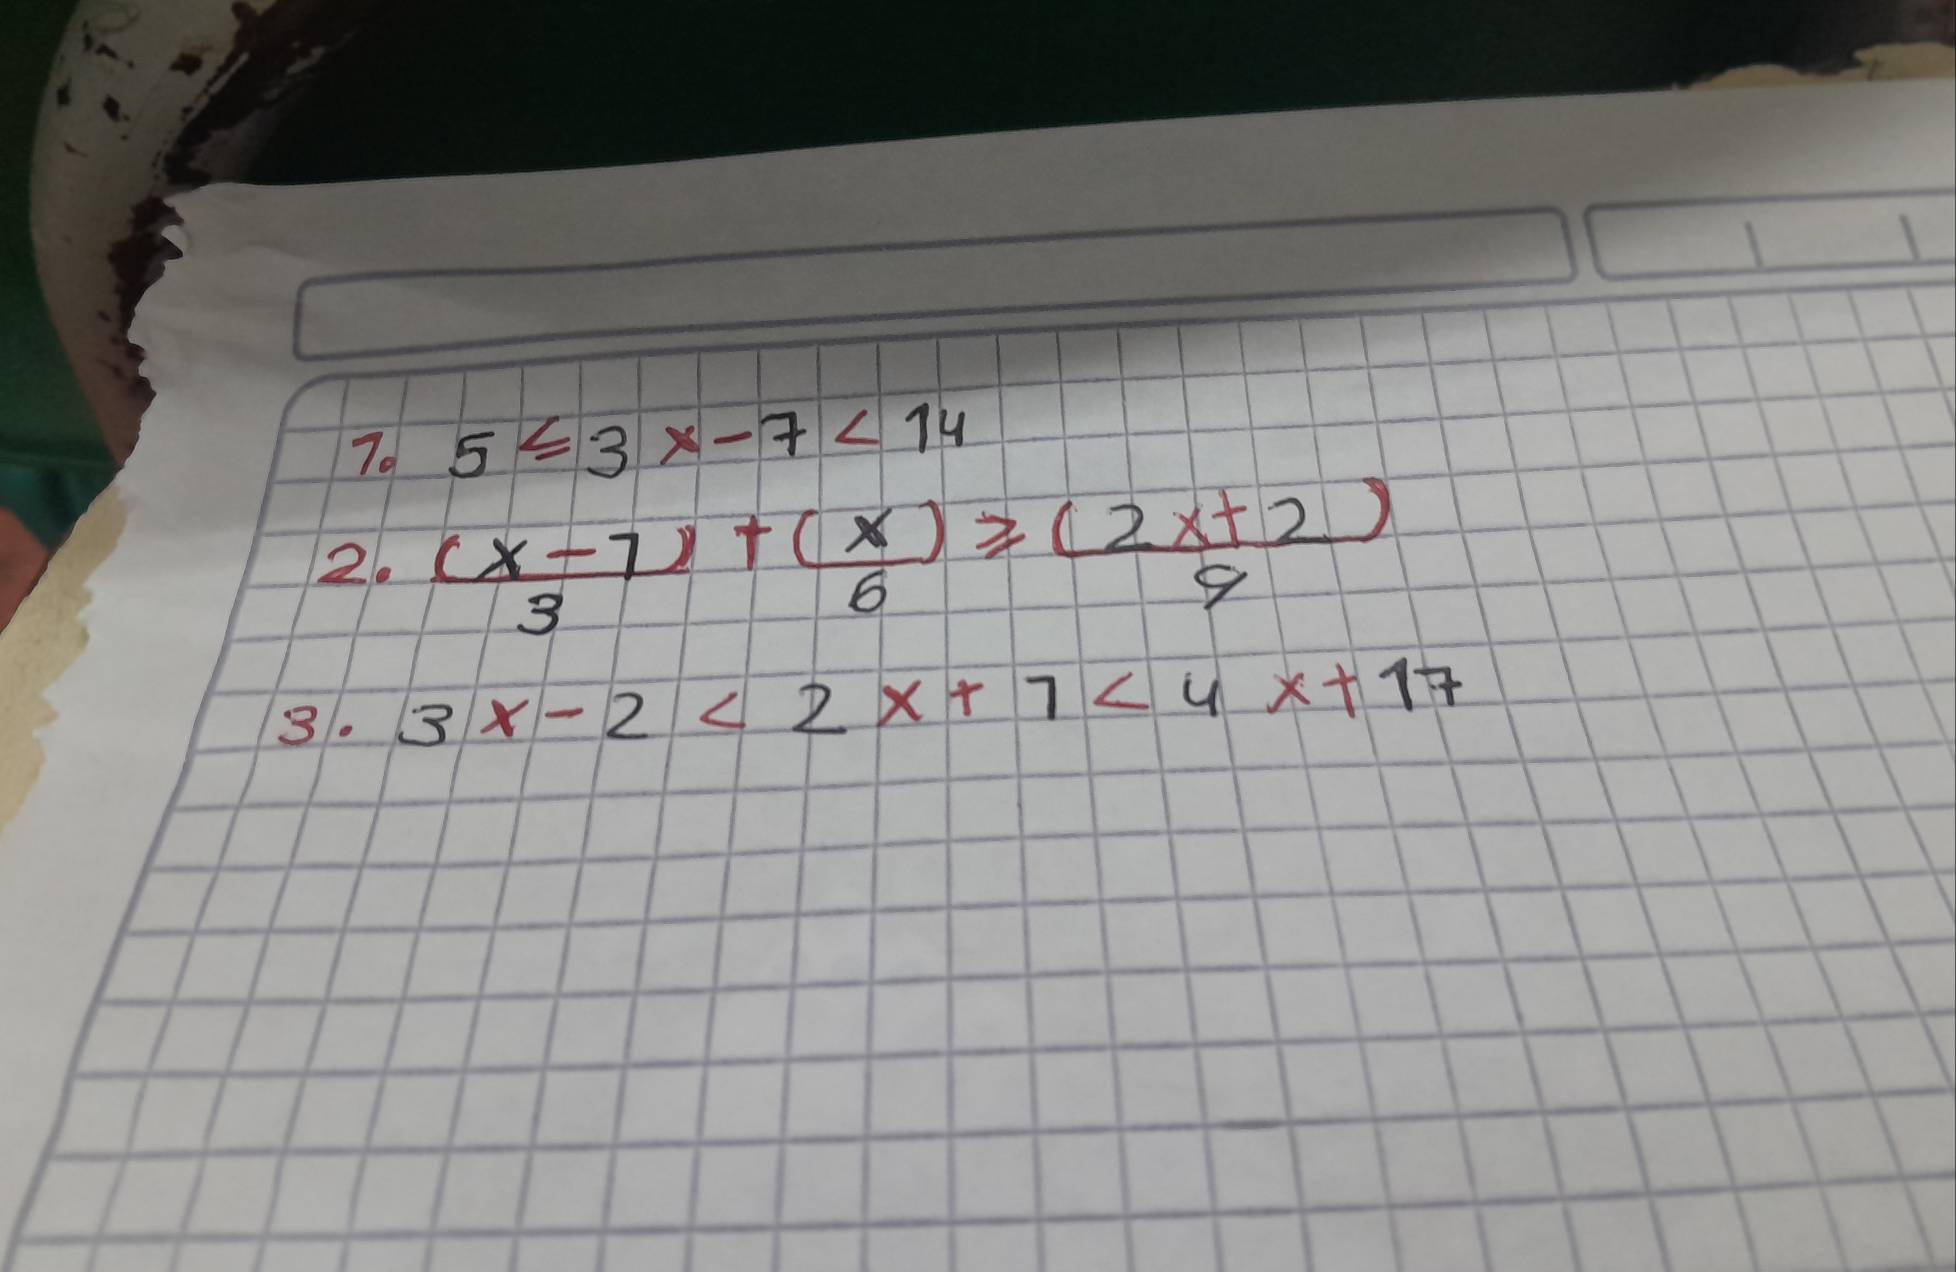 1. 5 ≤ 3x - 7 < 14
2. (x - 1)/3 + (x)/6 ≥ (2x + 2)/9
3. 3x - 2 < 2x + 1 < 4x + 17